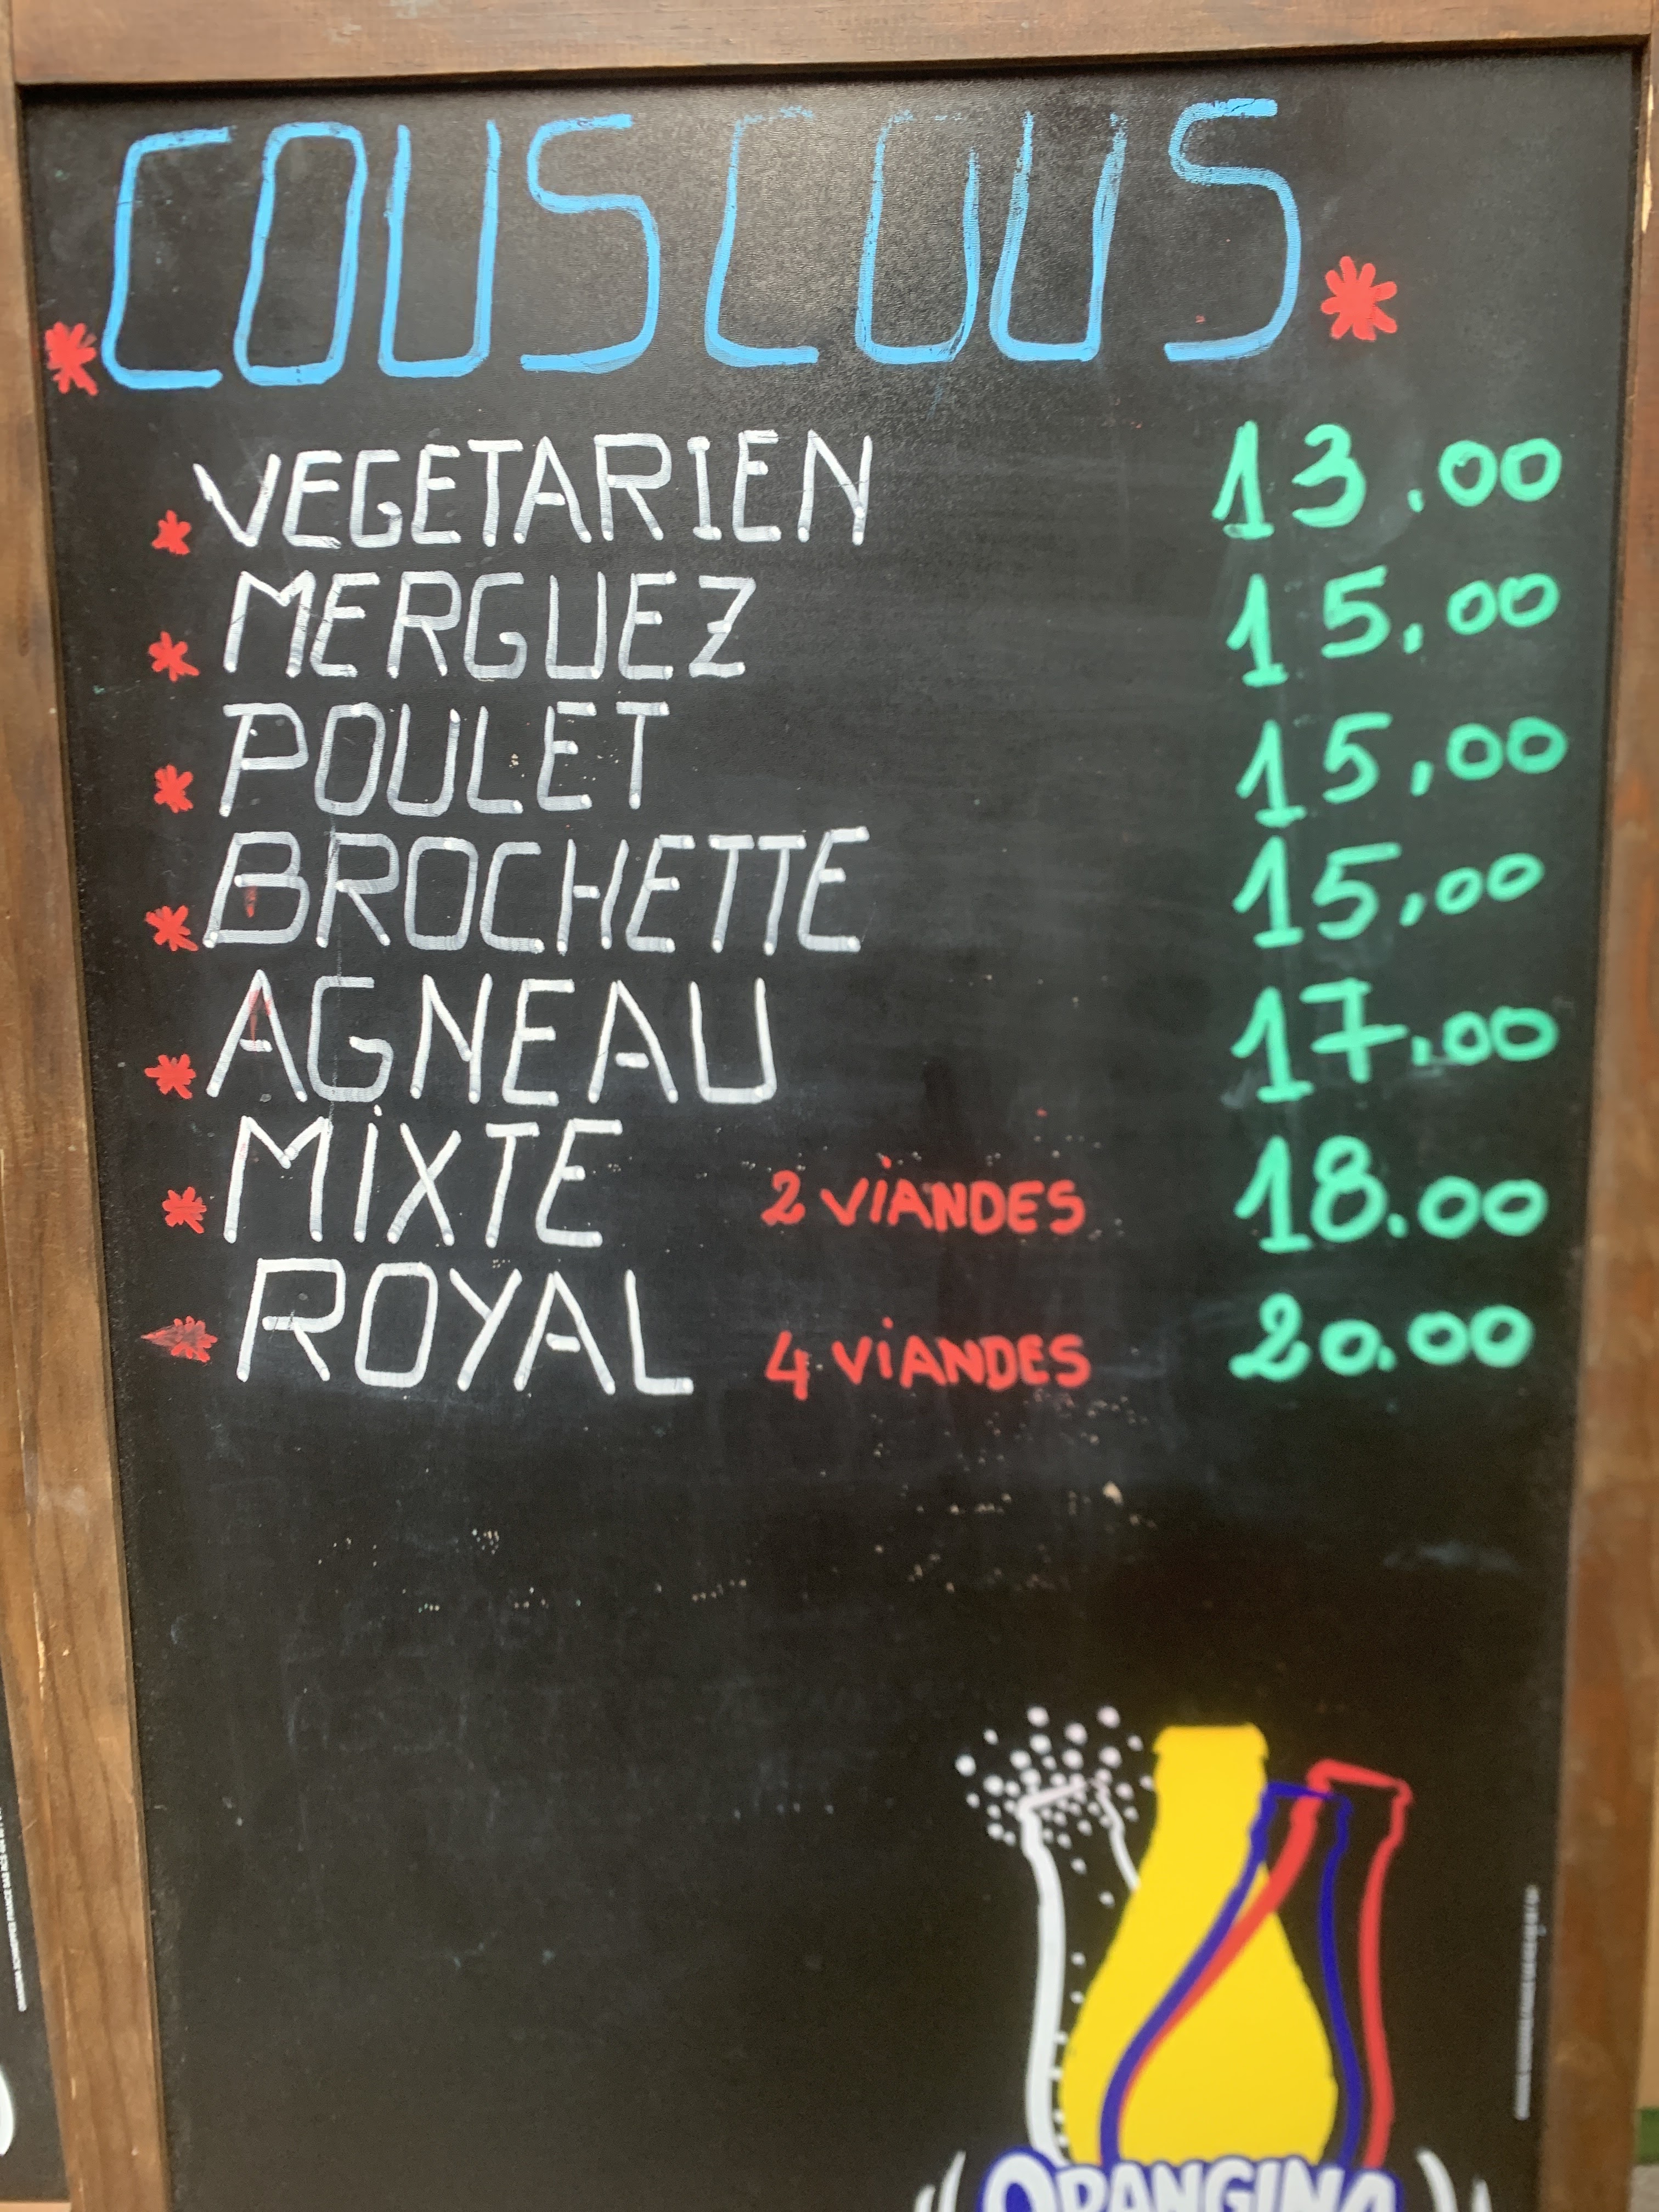 COUSCOUS
VEGETARIEN 13.00
MERGUEZ 15,00
POULET 15,00
BROCHETTE 15,00
AGNEAU 17.00
MIXTE 2 VIANDES 18.00
ROYAL 4 VIANDES 20.00
ORANGINA